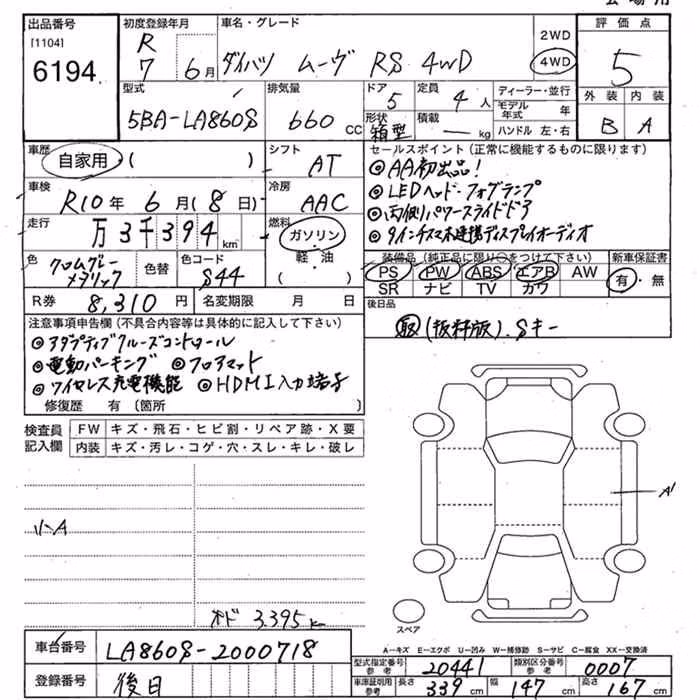 出品番号
[1104]
6194
初度登録年月
R
7 6月
車名・グレード
ダイハツ ムーヴ RS 4WD
2WD
4WD
評価点
5
外装 内装
B A
型式
5BA-LA860S
排気量
660 CC
ドア
5
定員
4 人
形状
箱型
積載
— kg
ディーラー・並行
モデル年式 年
ハンドル 左・右
車歴
自家用 ( )
シフト
AT
セールスポイント(正常に機能するものに限ります)
◎AA初出品!
◎LEDヘッド・フォグランプ
◎両側パワースライドドア
◎9インチスマホ連携ディスプレイオーディオ
車検
R10年 6月(8日)
冷房
AAC
走行
万3千394km
燃料
ガソリン
軽・油
( )
色
クロムグレーメタリック
色替
色コード
S44
装備品(純正品に限り○をつけて下さい)
PS PW ABS エアB AW
SR ナビ TV カワ
新車保証書
有・無
R券 8,310円
名変期限 月 日
後日品
取(抜粋版).Sキー
注意事項申告欄(不具合内容等は具体的に記入して下さい)
◎アダプティブクルーズコントロール
◎電動パーキング ◎フロアマット
◎ワイヤレス充電機能 ◎HDMI入力端子
修復歴 有 〔箇所 〕
検査員記入欄
FW キズ・飛石・ヒビ割・リペア跡・X要
内装 キズ・汚レ・コゲ・穴・スレ・キレ・破レ
小A
A'
オド 3395k
スペア
A…キズ E…エクボ U…凹み W…補修跡 S…サビ C…腐食 XX…交換済
車台番号 LA860S-2000718
型式指定番号参考 20441 類別区分番号参考 0007
登録番号 後日
車庫証明用参考 長さ 339cm 幅 147cm 高さ 167cm